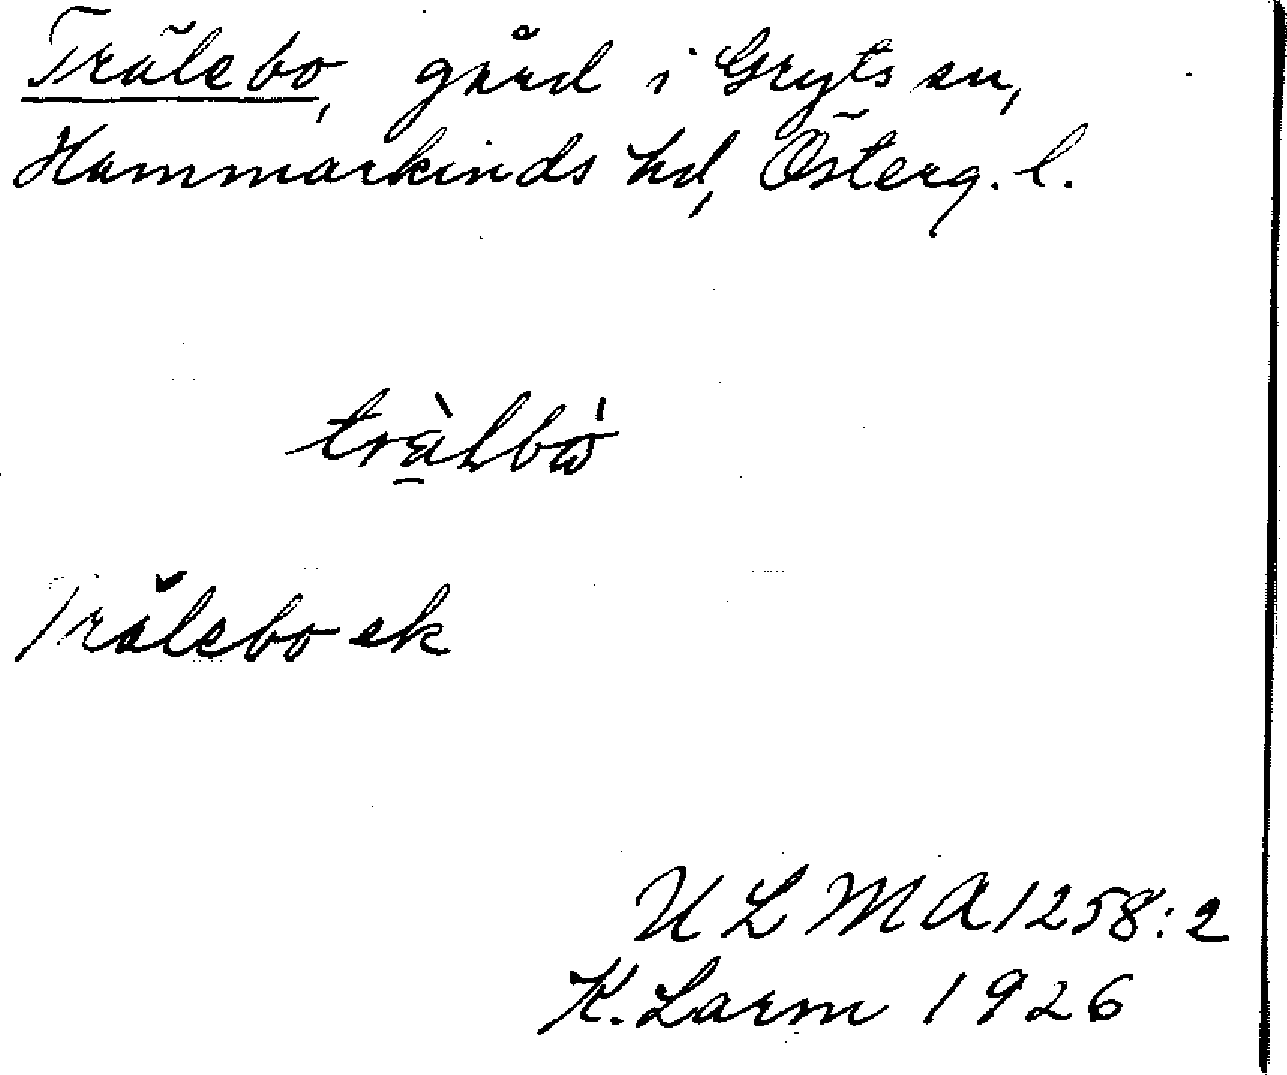 Trälebo, gård i Gryts sn,
Hammarkinds hd, Österg. l.
Trälebo ek
ULMA 1258:2
K. Larm 1926